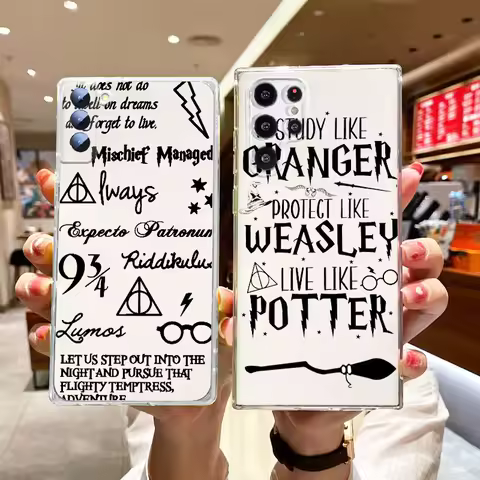 it does not do
to dwell on dreams
and forget to live.
Mischief Managed
Always
Expecto Patronum
9 3/4
Riddikulus
Lumos
LET US STEP OUT INTO THE
NIGHT AND PURSUE THAT
FLIGHTY TEMPTRESS,
ADVENTURE
STUDY LIKE
GRANGER
PROTECT LIKE
WEASLEY
LIVE LIKE
POTTER